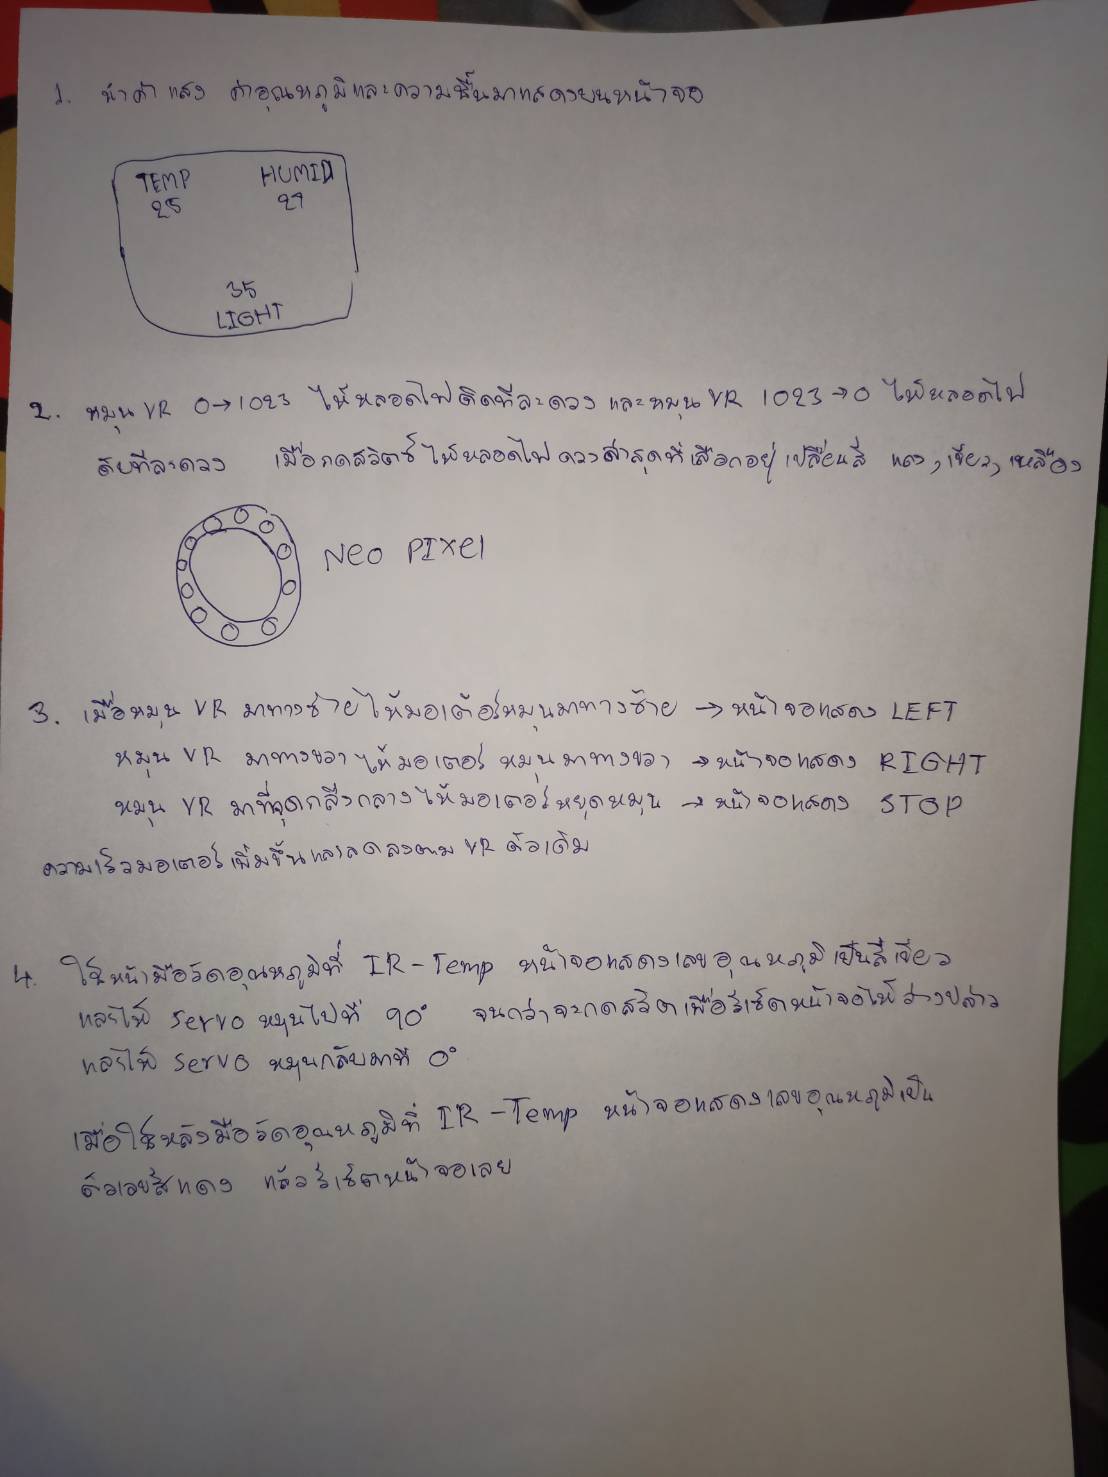 1. นำค่า แสง ค่าอุณหภูมิและความชื้นมาแสดงบนหน้าจอ
TEMP HUMID
25 27
35
LIGHT
2. หมุน VR 0→1023 ให้หลอดไฟติดทีละดวง และหมุน VR 1023→0 ให้หลอดไฟ
ดับทีละดวง เมื่อกดสวิตซ์ ให้หลอดไฟดวงล่าสุดที่เลือกอยู่เปลี่ยนสี แดง, เขียว, เหลือง
Neo PIxel
3. เมื่อหมุน VR มาทางซ้ายให้มอเตอร์หมุนมาทางซ้าย → หน้าจอแสดง LEFT
หมุน VR มาทางขวา ให้มอเตอร์ หมุนมาทางขวา → หน้าจอแสดง RIGHT
หมุน VR มาที่จุดกึ่งกลางให้มอเตอร์หยุดหมุน → หน้าจอแสดง STOP
ความเร็วมอเตอร์เพิ่มขึ้นและลดลงตาม VR ตัวเดิม
4. ใช้หน้ามือวัดอุณหภูมิที่ IR-Temp หน้าจอแสดงเลขอุณหภูมิเป็นสีเขียว
และให้ servo หมุนไปที่ 90° จนกว่าจะกดสวิตเพื่อรีเซ็ตหน้าจอให้ว่างปล่าว
และให้ servo หมุนกลับมาที่ 0°
เมื่อใช้หลังมือวัดอุณหภูมิที่ IR-Temp หน้าจอแสดงเลขอุณหภูมิเป็น
ตัวเลขสีแดง แล้วรีเซ็ตหน้าจอเลย